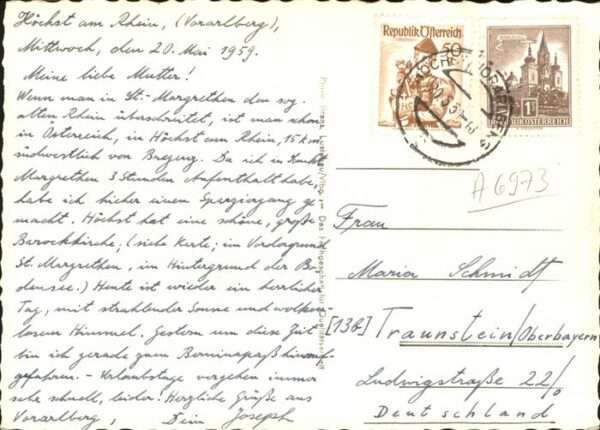 Höchst am Rhein, (Vorarlberg),
Mittwoch, den 20. Mai 1959.
Meine liebe Mutter!
Wenn man in St. Margrethen den sog.
alten Rhein überschreitet, ist man schon
in Österreich, in Höchst am Rhein, 15 km
südwestlich von Bregenz. Da ich in Sankt
Margrethen 3 Stunden Aufenthalt habe,
habe ich hieher einen Spaziergang ge-
macht. Höchst hat eine schöne, große
Barockkirche; (siehe Karte; im Vordergrund
St. Margrethen, im Hintergrund der Bo-
densee.) Heute ist wieder ein herrlicher
Tag, mit strahlender Sonne und wolken-
losem Himmel. Gestern um diese Zeit
bin ich gerade zum Berninapaß hinauf-
gefahren. - Urlaubstage vergehen immer
sehr schnell, leider. Herzliche Grüße aus
Vorarlberg, Dein Joseph
Republik Österreich
50
1S
REPUBLIK ÖSTERREICH
A 6973
Frau
Maria Schmidt
[13b] Traunstein/Oberbayern
Ludwigstraße 22/0
Deutschland